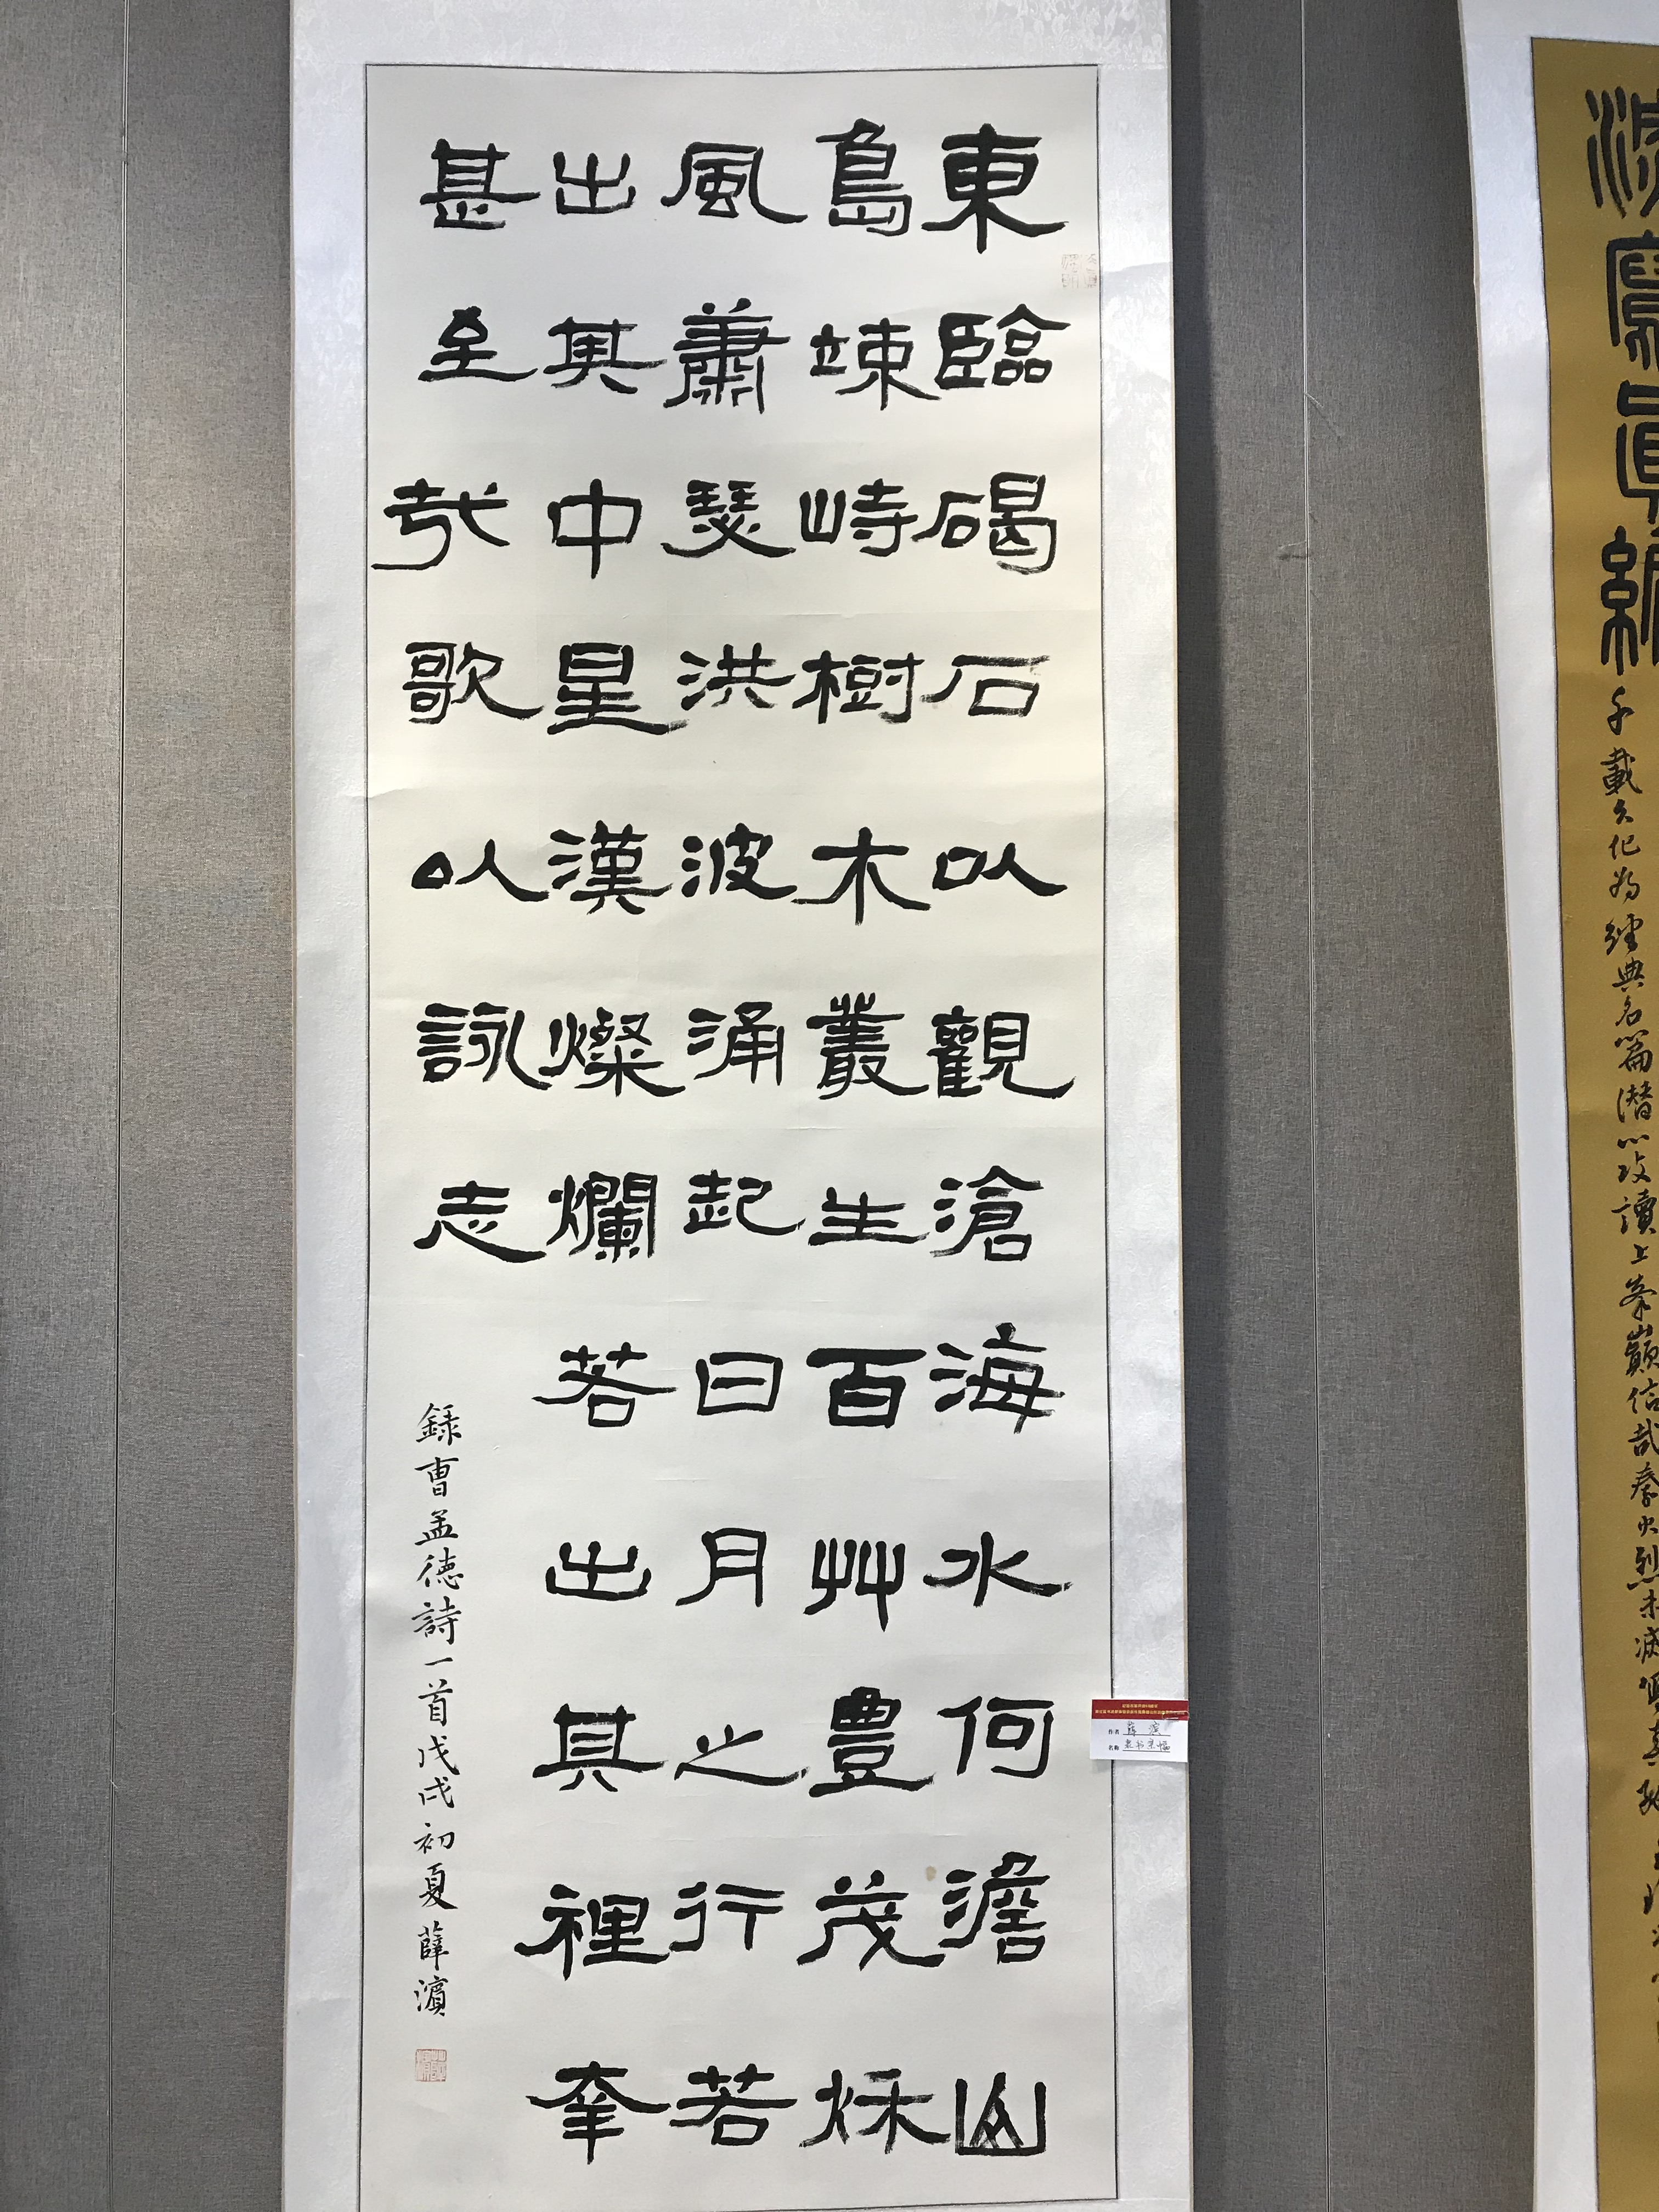 千載文化為經典名篇潛心攻讀上峯巔信哉秦火烈未滅
東臨碣石以觀滄海水何澹山
島竦峙樹木叢生百艸豊茂秌
風蕭瑟洪波涌起日月之行若
出其中星漢燦爛若出其裡幸
甚至哉歌以詠志
錄曹孟德詩一首戊戌初夏薛濱
作者 薛滨
名称 隶书条幅